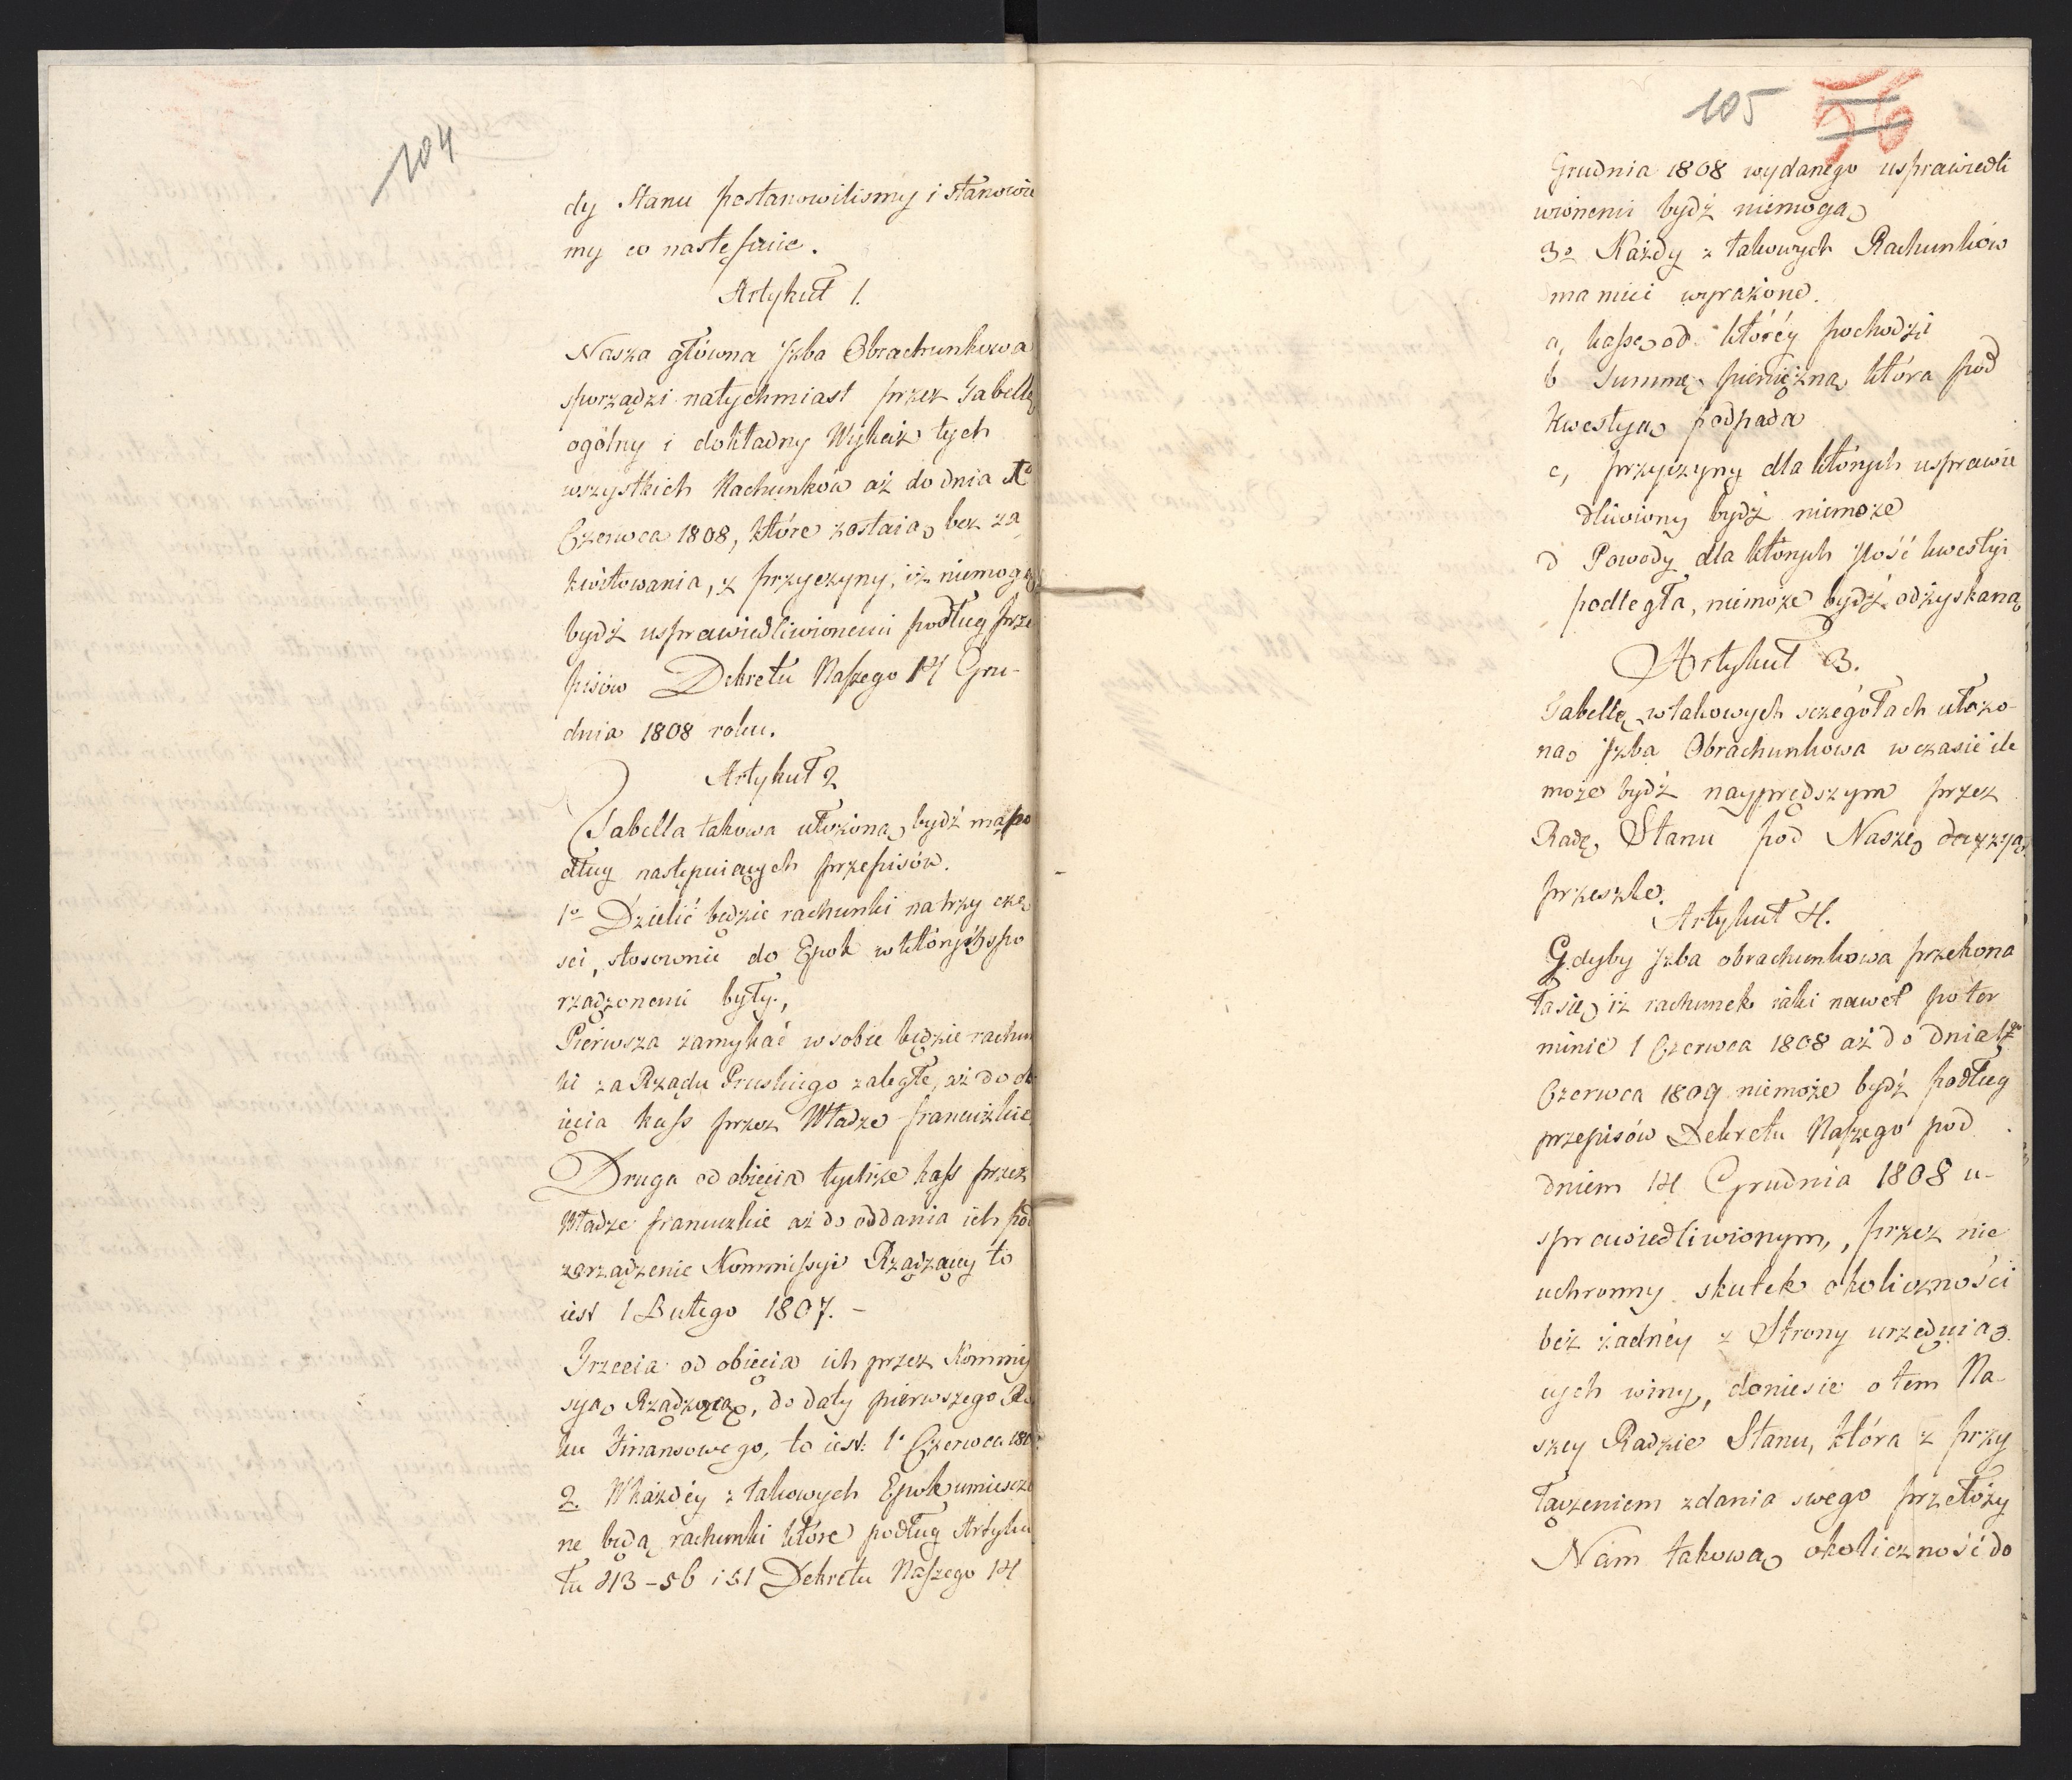 104
dy Stanu postanowilismy i stanowie
my co następuie.
Artykuł 1.
Nasza główna Jzba Obrachunkowa
sporządzi natychmiast przez Tabellę
ogólny i dokładny Wykaz tych
wszystkich Rachunków aż do dnia 1o
Czerwca 1808, które zostaią bez za
kwitowania, z przyczyny, iż niemogą
bydź usprawiedliwionemi podług prze
pisów Dekretu Naszego 14 Gru-
dnia 1808 roku.
Artykuł 2
Tabella takowa ułożoną bydź ma po
dług następuiących przepisów.
1o Dzielić będzie rachunki na trzy czę
sci, stosownie do Epok w których spo
rządzonemi były.,
Pierwsza zamykać w sobie będzie rachun
ki za Rządu Pruskiego zaległe, aż do ob
ięcia kass przez Władze francuzkie
Druga od obięcia tychże kass przez
Władze francuzkie aż do oddania ich pod
zarządzenie Kommissyi Rządzący to
iest 1 Lutego 1807. -
Trzecia od obięcia ich przez Kommis
syą Rządzącą, do daty pierwszego Ro
ku Finansowego, to iest: 1o Czerwca 180
2. W każdéy z takowych Epok umiesczo
ne będą rachunki które podług Artyku
łu 43 - 56 i 51 Dekretu Naszego 14
105
56
Grudnia 1808 wydanego usprawiedli
wionemi bydź niemogą
3o Każdy z takowych Rachunków
ma mieć wyrażone.
a, kassę od któréy pochodzi
b Summę pieniężną która pod
kwestyą podpada
c, przyczyny dla których usprawie
dliwiony bydź niemoże
d Powody dla których Jlość kwestyi
podległa, niemoże bydź odzyskaną
Artykuł 3.
Tabellę w takowych sczegółach ułożo-
ną Jzba Obrachunkowa w czasie ile
może bydź nayprędszym przez
Radę Stanu pod Naszę decyzyą
przeszle.
Artykuł 4.
Gdyby Jzba obrachunkowa przekona
ła się iż rachunek iaki nawet po ter
minie 1 Czerwca 1808 aż do dnia 1go
Czerwca 1809 niemoże bydź podług
przepisów Dekretu Naszego pod
dniem 14 Grudnia 1808 u-
sprawiedliwionym, przez nie
uchronny skutek okoliczności
bez żadnéy z Strony urzęduią
cych winy, doniesie o tem Na
szey Radzie Stanu, która z przy
łączeniem zdania swego przełoży
Nam takową okoliczność do